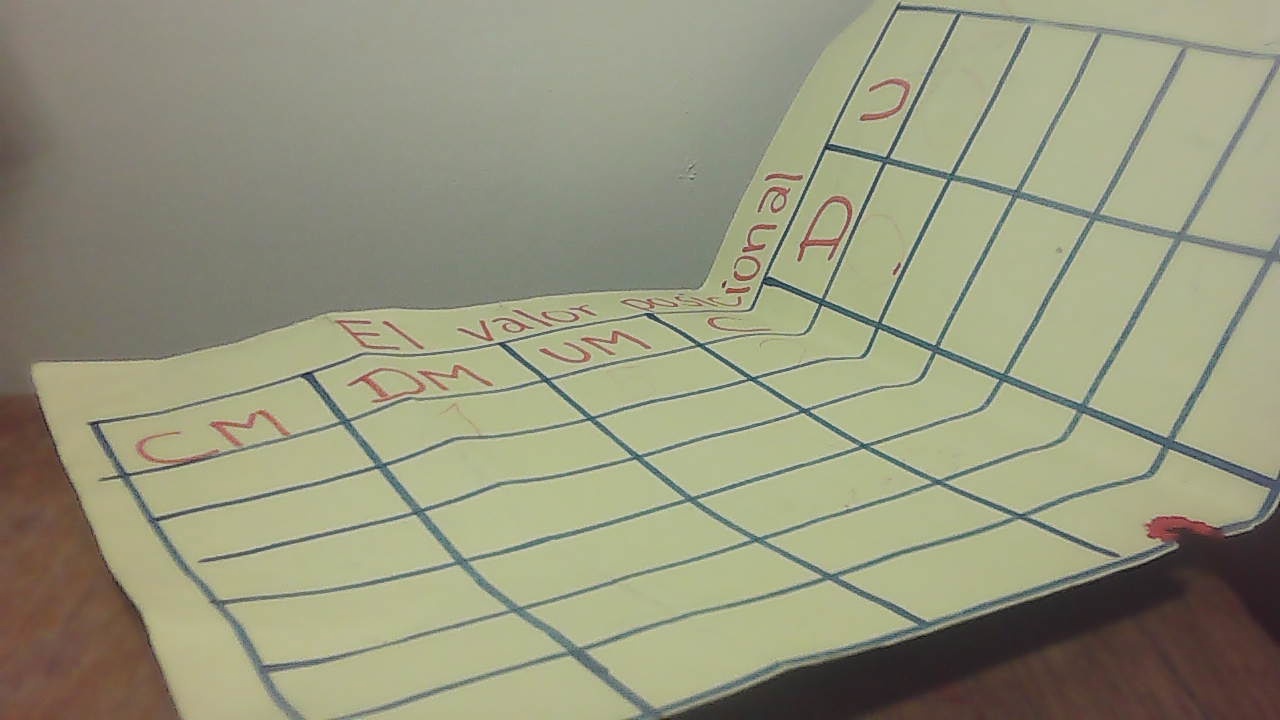 El valor posicional
CM DM UM C D U